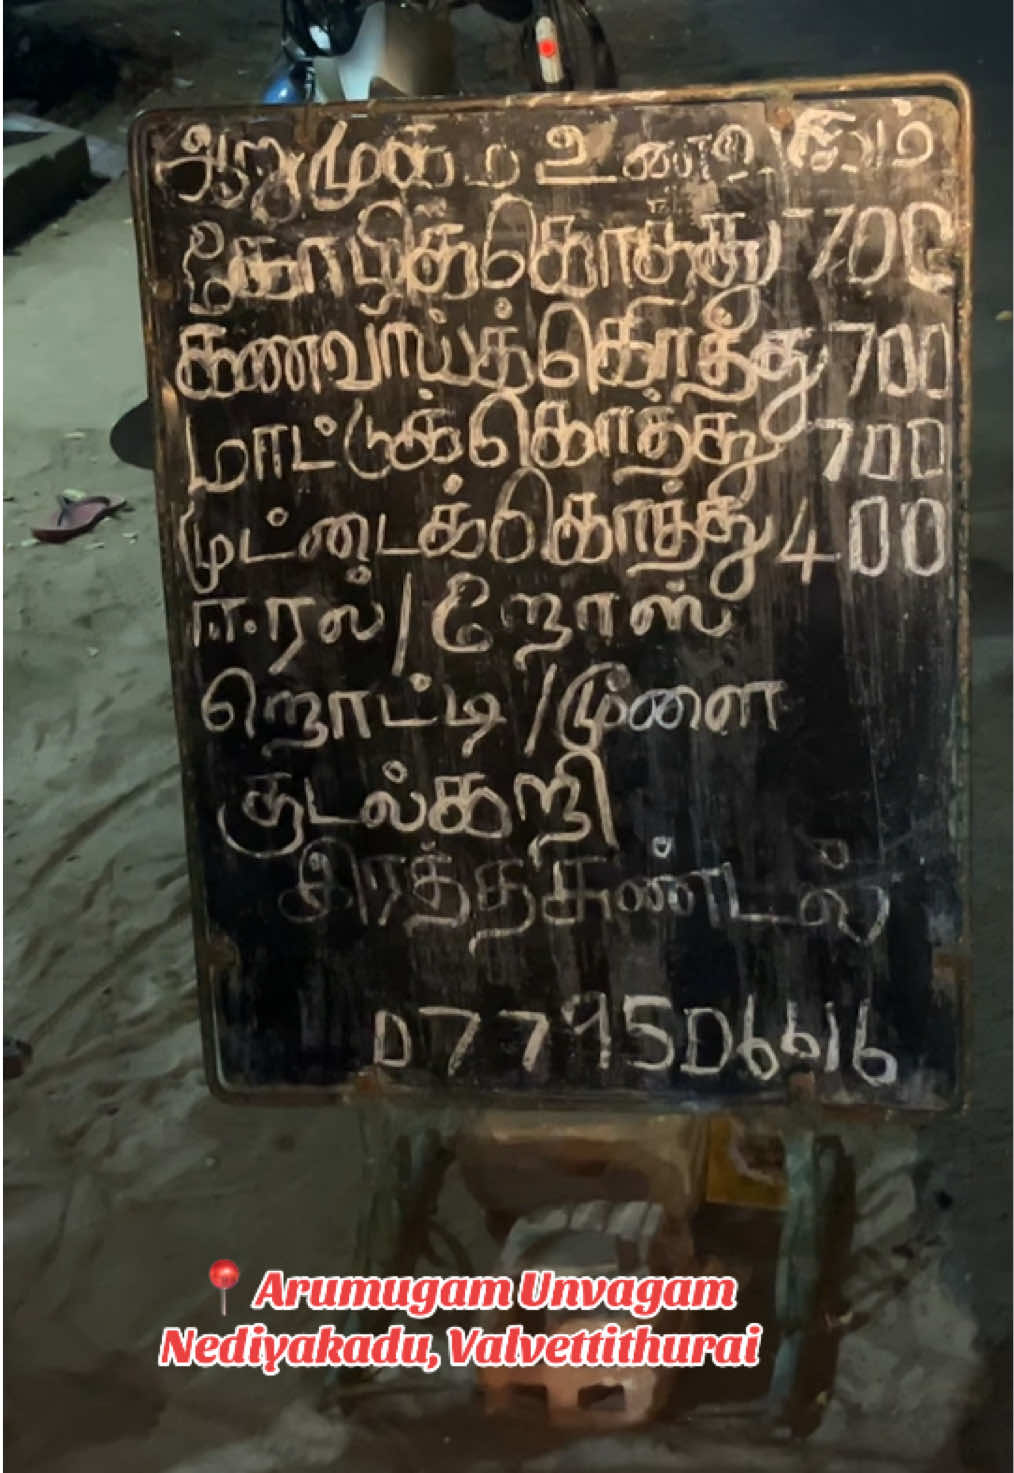 ஆறுமுகம் உணவகம்
கோழிக்கொத்து 700
கணவாய்க்கொத்து 700
மாட்டுக்கொத்து 700
முட்டைக்கொத்து 400
ஈரல் / றோஸ்
றொட்டி / மூளை
குடல்கறி
இரத்தசுண்டல்
📍 Arumugam Unvagam
Nediyakadu, Valvettithurai